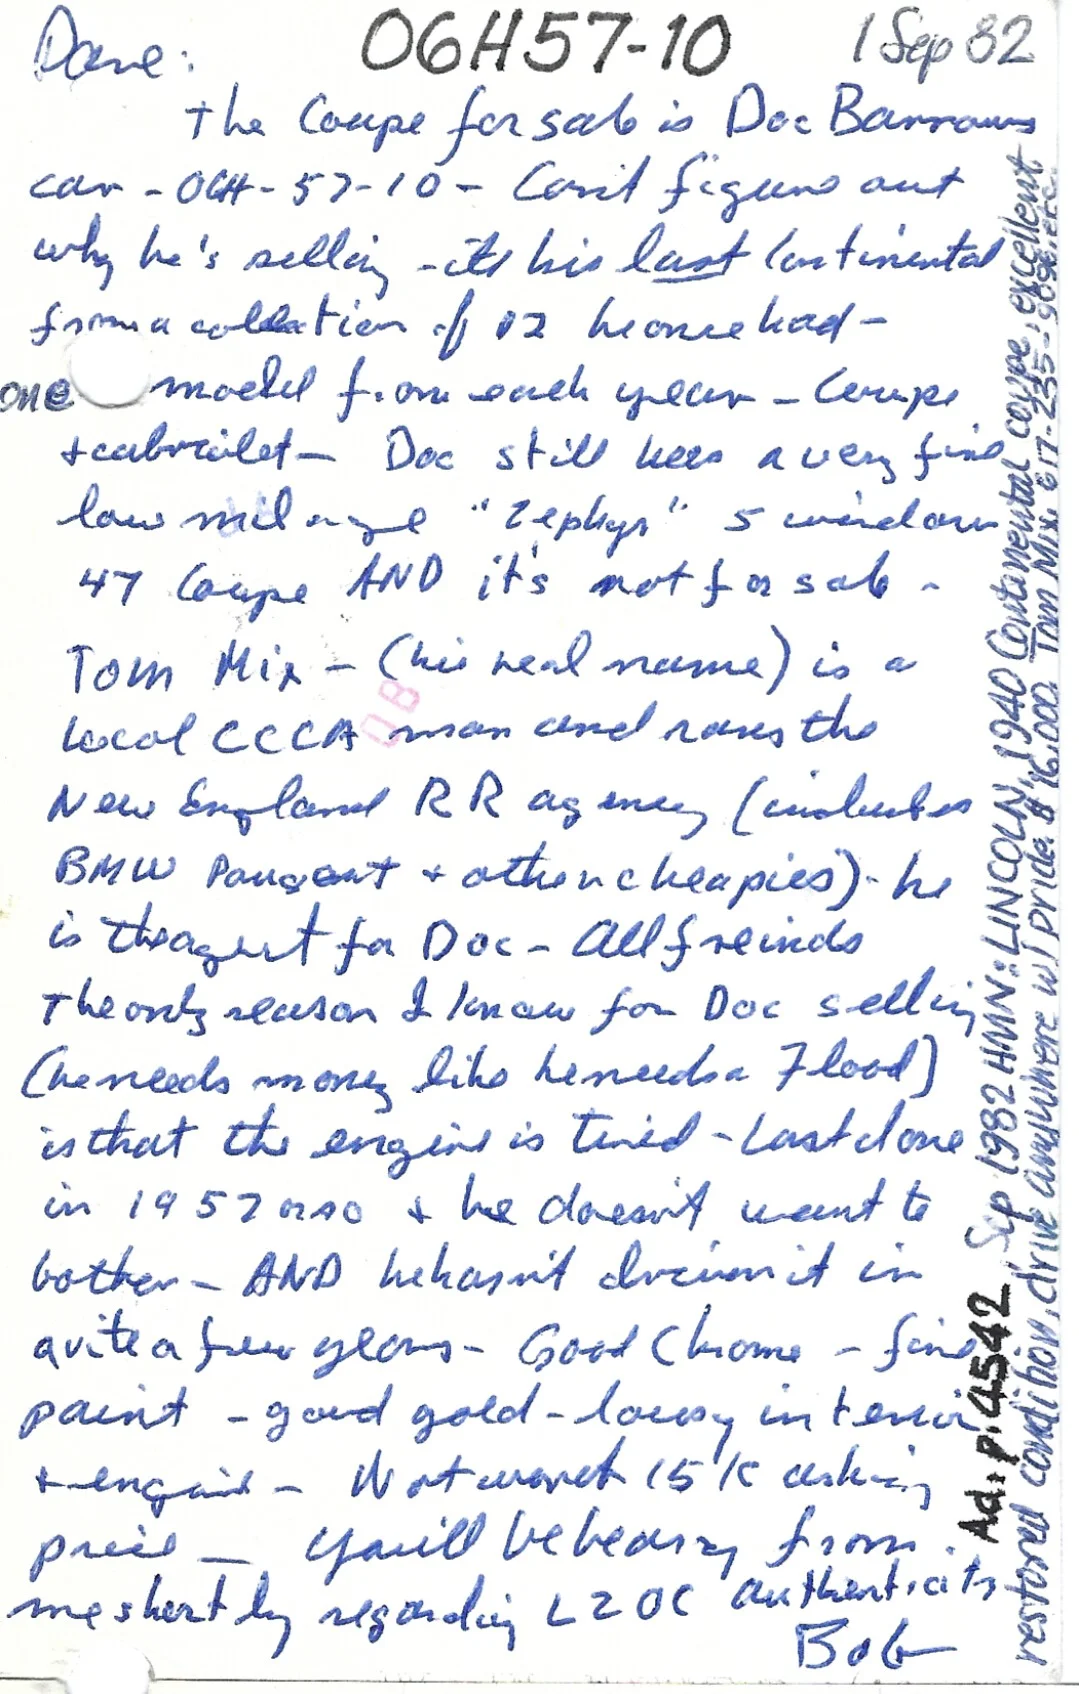 Dave:
06H57-10
1 Sep 82
the Coupe for sale is Doc Barrows
car - 06H-57-10 - Can't figure out
why he's selling - its his last Continental
from a collection of 12 he once had -
one model from each year - Coupe
+ cabriolet - Doc still has a very fine
low milage "Zephyr" 5 window
47 Coupe AND it's not for sale -
Tom Mix - (his real name) is a
local CCCA man and runs the
New England RR agency (includes
BMW Paugeat + other cheapies) - he
is the agent for Doc - All freinds
the only reason I know for Doc selling
(he needs money like he needs a Flood)
is that the engine is tired - Last done
in 1957 or so + he doesn't want to
bother - AND he hasn't driven it in
quite a few years - Good Chrome - fine
paint - good gold - lousy interior
+ engine - Not worth 15K asking
price — you'll be hearing from
me shortly regarding LZOC authenticity
Bob
Ad: p. 4542 Sep 1982 HMN: LINCOLN, 1940 Continental coupe, excellent
restored condition, drive anywhere w/pride. $16,000. Tom Mix, 617-235-